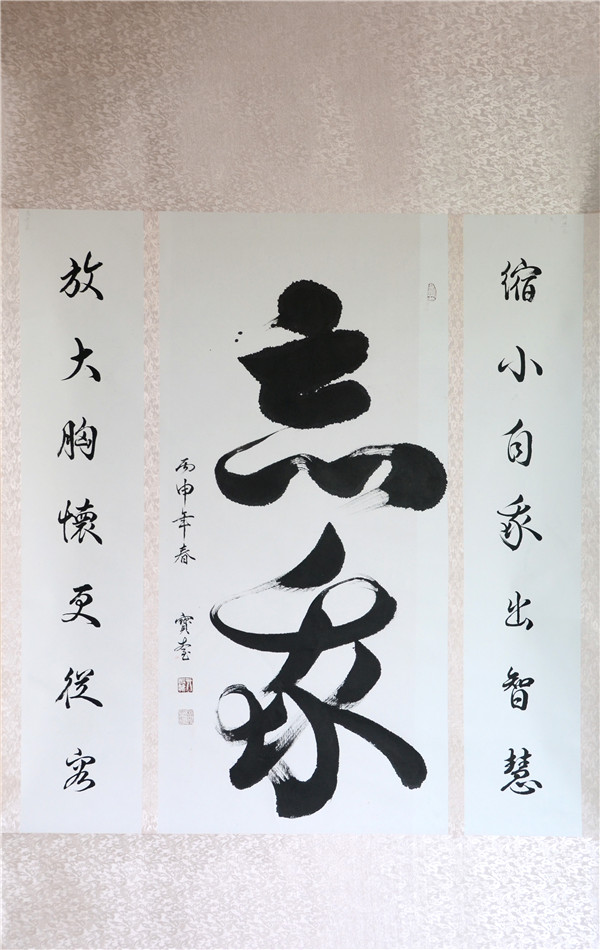 縮小自我出智慧
忘我
丙申年春 寶奎
放大胸懷更從容